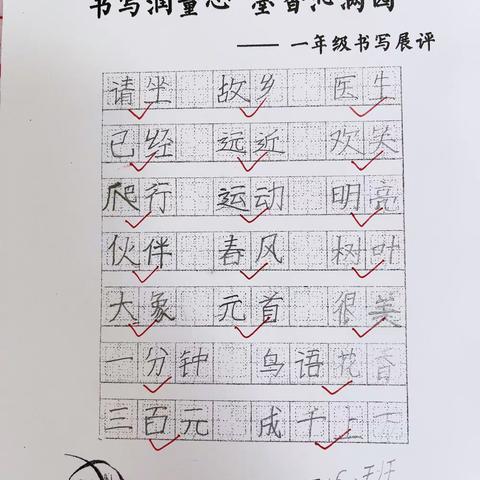 书写润童心 墨香沁满园
—— 一年级书写展评
请坐 故乡 医生
已经 远近 欢笑
爬行 运动 明亮
伙伴 春风 树叶
大象 元首 很美
一分钟 鸟语花香
三百元 成千上
班